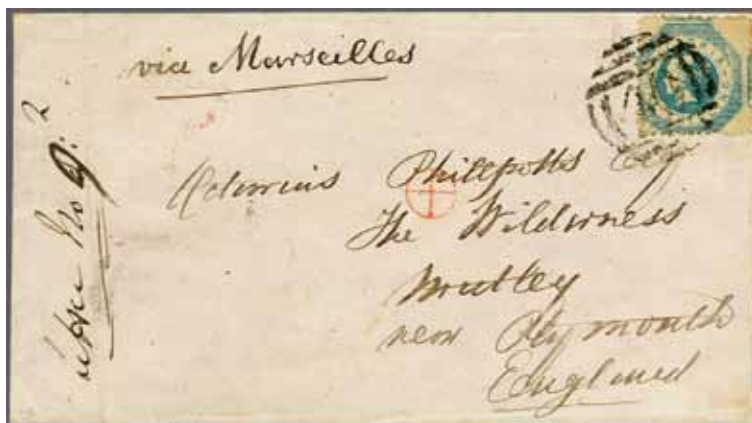 via Marseilles
Octavius Phillpotts Esq
The Wilderness
Mutley
near Plymouth
England